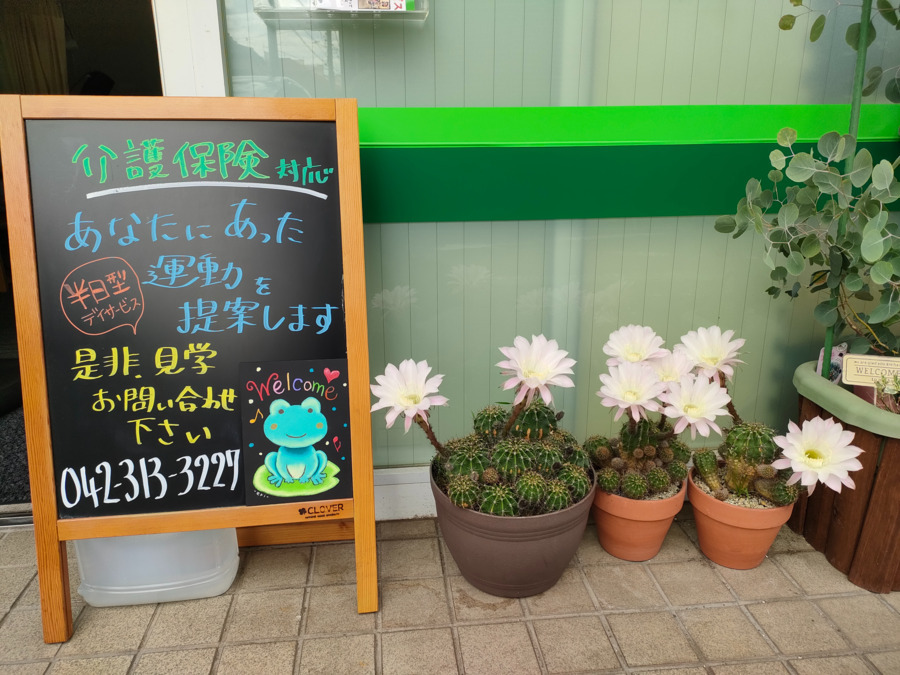 介護保険対応
あなたにあった
半日型
デイサービス
運動を
提案します
是非、見学
お問い合わせ
下さい
042-313-3227
Welcome
CLOVER
WELCOME